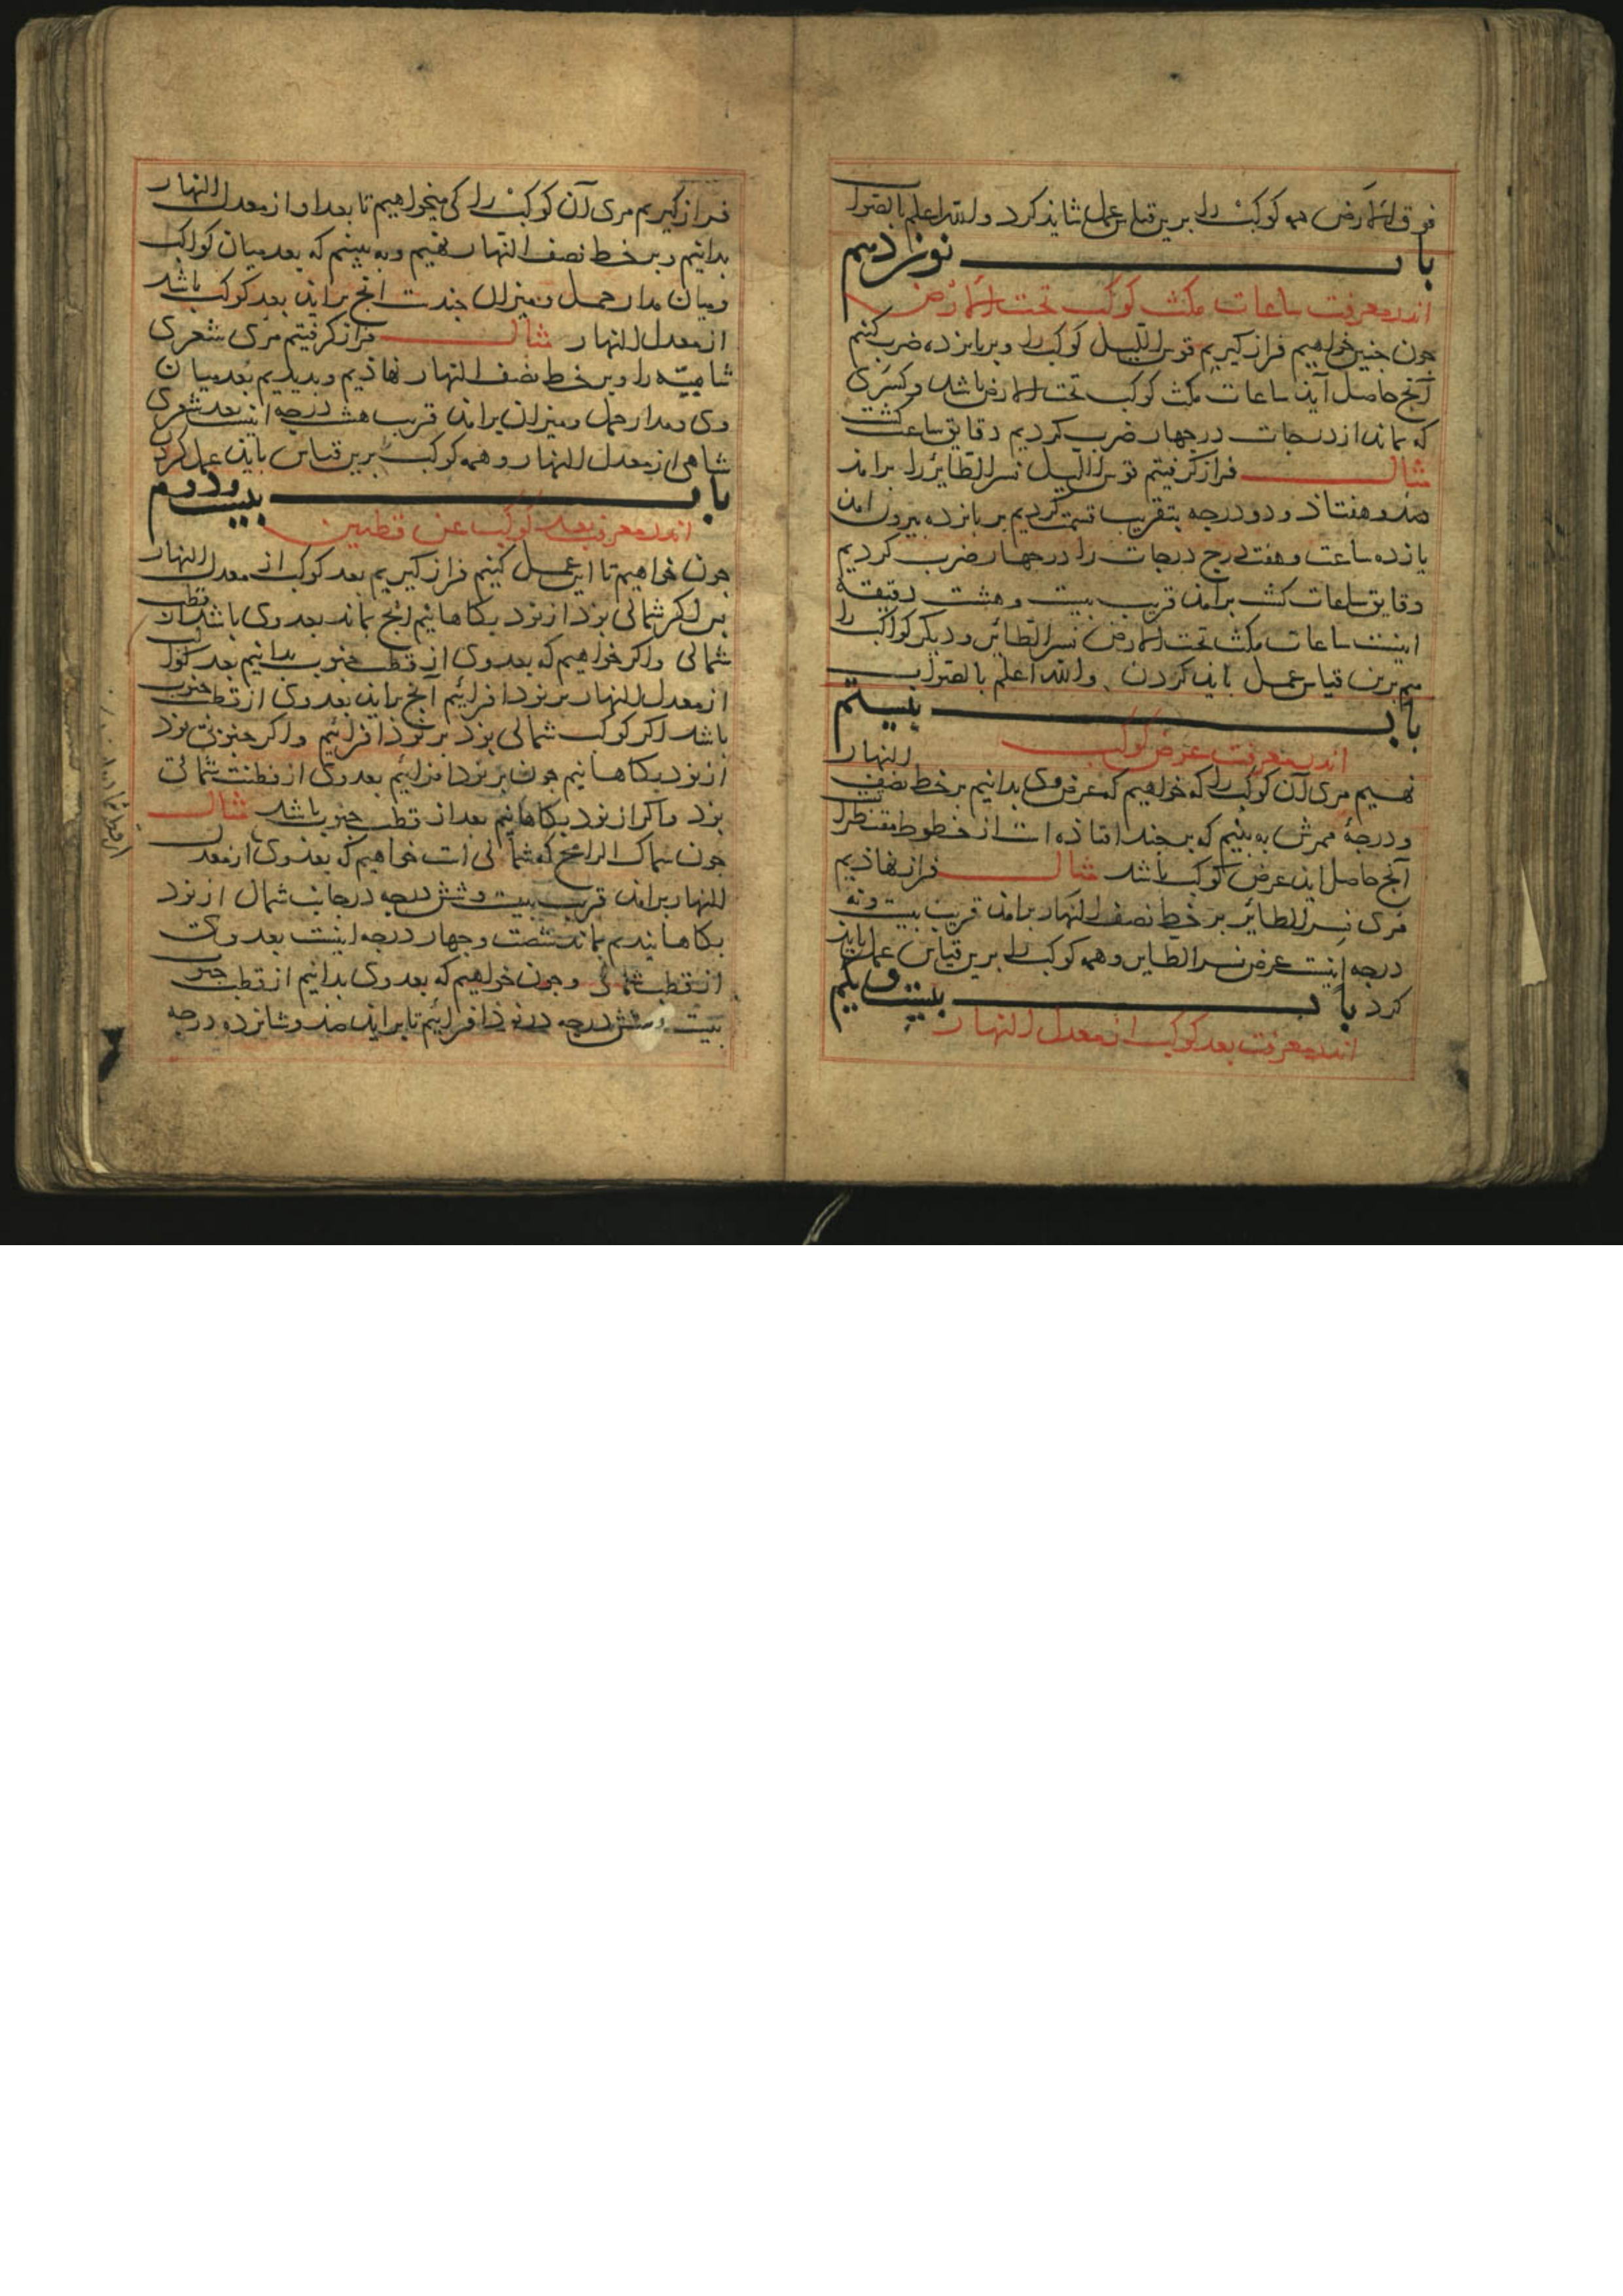 فوق الارض همه کوکب را برین قیاس عمل شاید کرد والله اعلم بالصواب
باب نوزدهم
اندر معرفت ساعات مکث کوکب تحت الارض
جون جنین خواهیم فراز کیریم قوس اللیل کوکب را و بر بانزده ضرب کنیم
آنج حاصل آید ساعات مکث کوکب تحت الارض باشد و کسری
که بماند از درجات در جهار ضرب کردیم دقایق ساعت کشت
مثال فراز کرفتیم قوس اللیل نسر الطایر را برامد
صد و هفتاذ و دو درجه بتقریب قسمت کردیم بر بانزده بیرون امذ
یازده ساعت و هفت درج درجات را در جهار ضرب کردیم
دقایق ساعات کشت برآمذ قریب بیست و هشت دقیقه
اینست ساعات مکث تحت الارض نسر الطائر و دیکر کواکب را
هم برین قیاس عمل باید کردن والله اعلم بالصواب
باب بیستم
اندر معرفت عرض کوکب
نهیم مری آن کوکب را که خواهیم که عرض وی بدانیم بر خط نصف النهار
و درجهٔ ممرش به بینیم که بر جند افتاذه است از خطوط مقنطرات
آنج حاصل اید عرض کوکب باشد مثال فراز نهاذیم
مری نسر الطائر بر خط نصف النهار برامذ قریب بیست و نه
درجه اینست عرض نسر الطایر و همه کوکب را برین قیاس عمل باید
کرد باب بیست و یکم
اندر معرفت بعد کوکب از معدل النهار
فراز کیریم مری آن کوکب را کی میخواهیم تا بعد او از معدل النهار
بدانیم و بر خط نصف النهار نهیم و به بینیم که بعد میان کواکب
و میان مدار حمل و میزان جندست انج براید بعد کوکب باشد
از معدل النهار مثال فراز کرفتیم مری شعری
شامیّه را و بر خط نصف النهار نهاذیم و بدیدیم بُعد میان
وی و مدار حمل و میزان برامذ قریب هشت درجه اینست بعد شعری
شامی از معدل النهار و همه کوکب برین قیاس باید عمل کرد
باب بیست و دوم
اندر معرفت بعد کوکب عن قطبین
جون خواهیم تا این عمل کنیم فراز کیریم بعد کوکب از معدل النهار
بس اکر شمالی بوذ از نوذ بکاهانیم انج بماند بعد وی باشد از قطب
شمالی و اکر خواهیم که بعد وی از قطب جنوب بدانیم بعد کوکب
از معدل النهار بر نوذ افزائیم آنج براید بعد وی از قطب جنوب
باشد اکر کوکب شمالی بوذ بر نوذ افزائیم و اکر جنوبی بوذ
از نود بکاهانیم جون بر نود افزائیم بعد وی از قطب شمالی
بوذ و اکر از نود بکاهانیم بعد از قطب جنوب باشد مثال
جون سماک الرامح که شمالی است خواهیم که بعد وی از معدل
النهار برامذ قریب بیست و شش درجه در جانب شمال از نود
بکاهانیدم بماند شصت و جهار درجه اینست بعد وی
از قطب شمالی و جون خواهیم که بعد وی بدانیم از قطب جنوب
بیست و شش درجه در نوذ افزائیم تا براید صذ و شانزده درجه